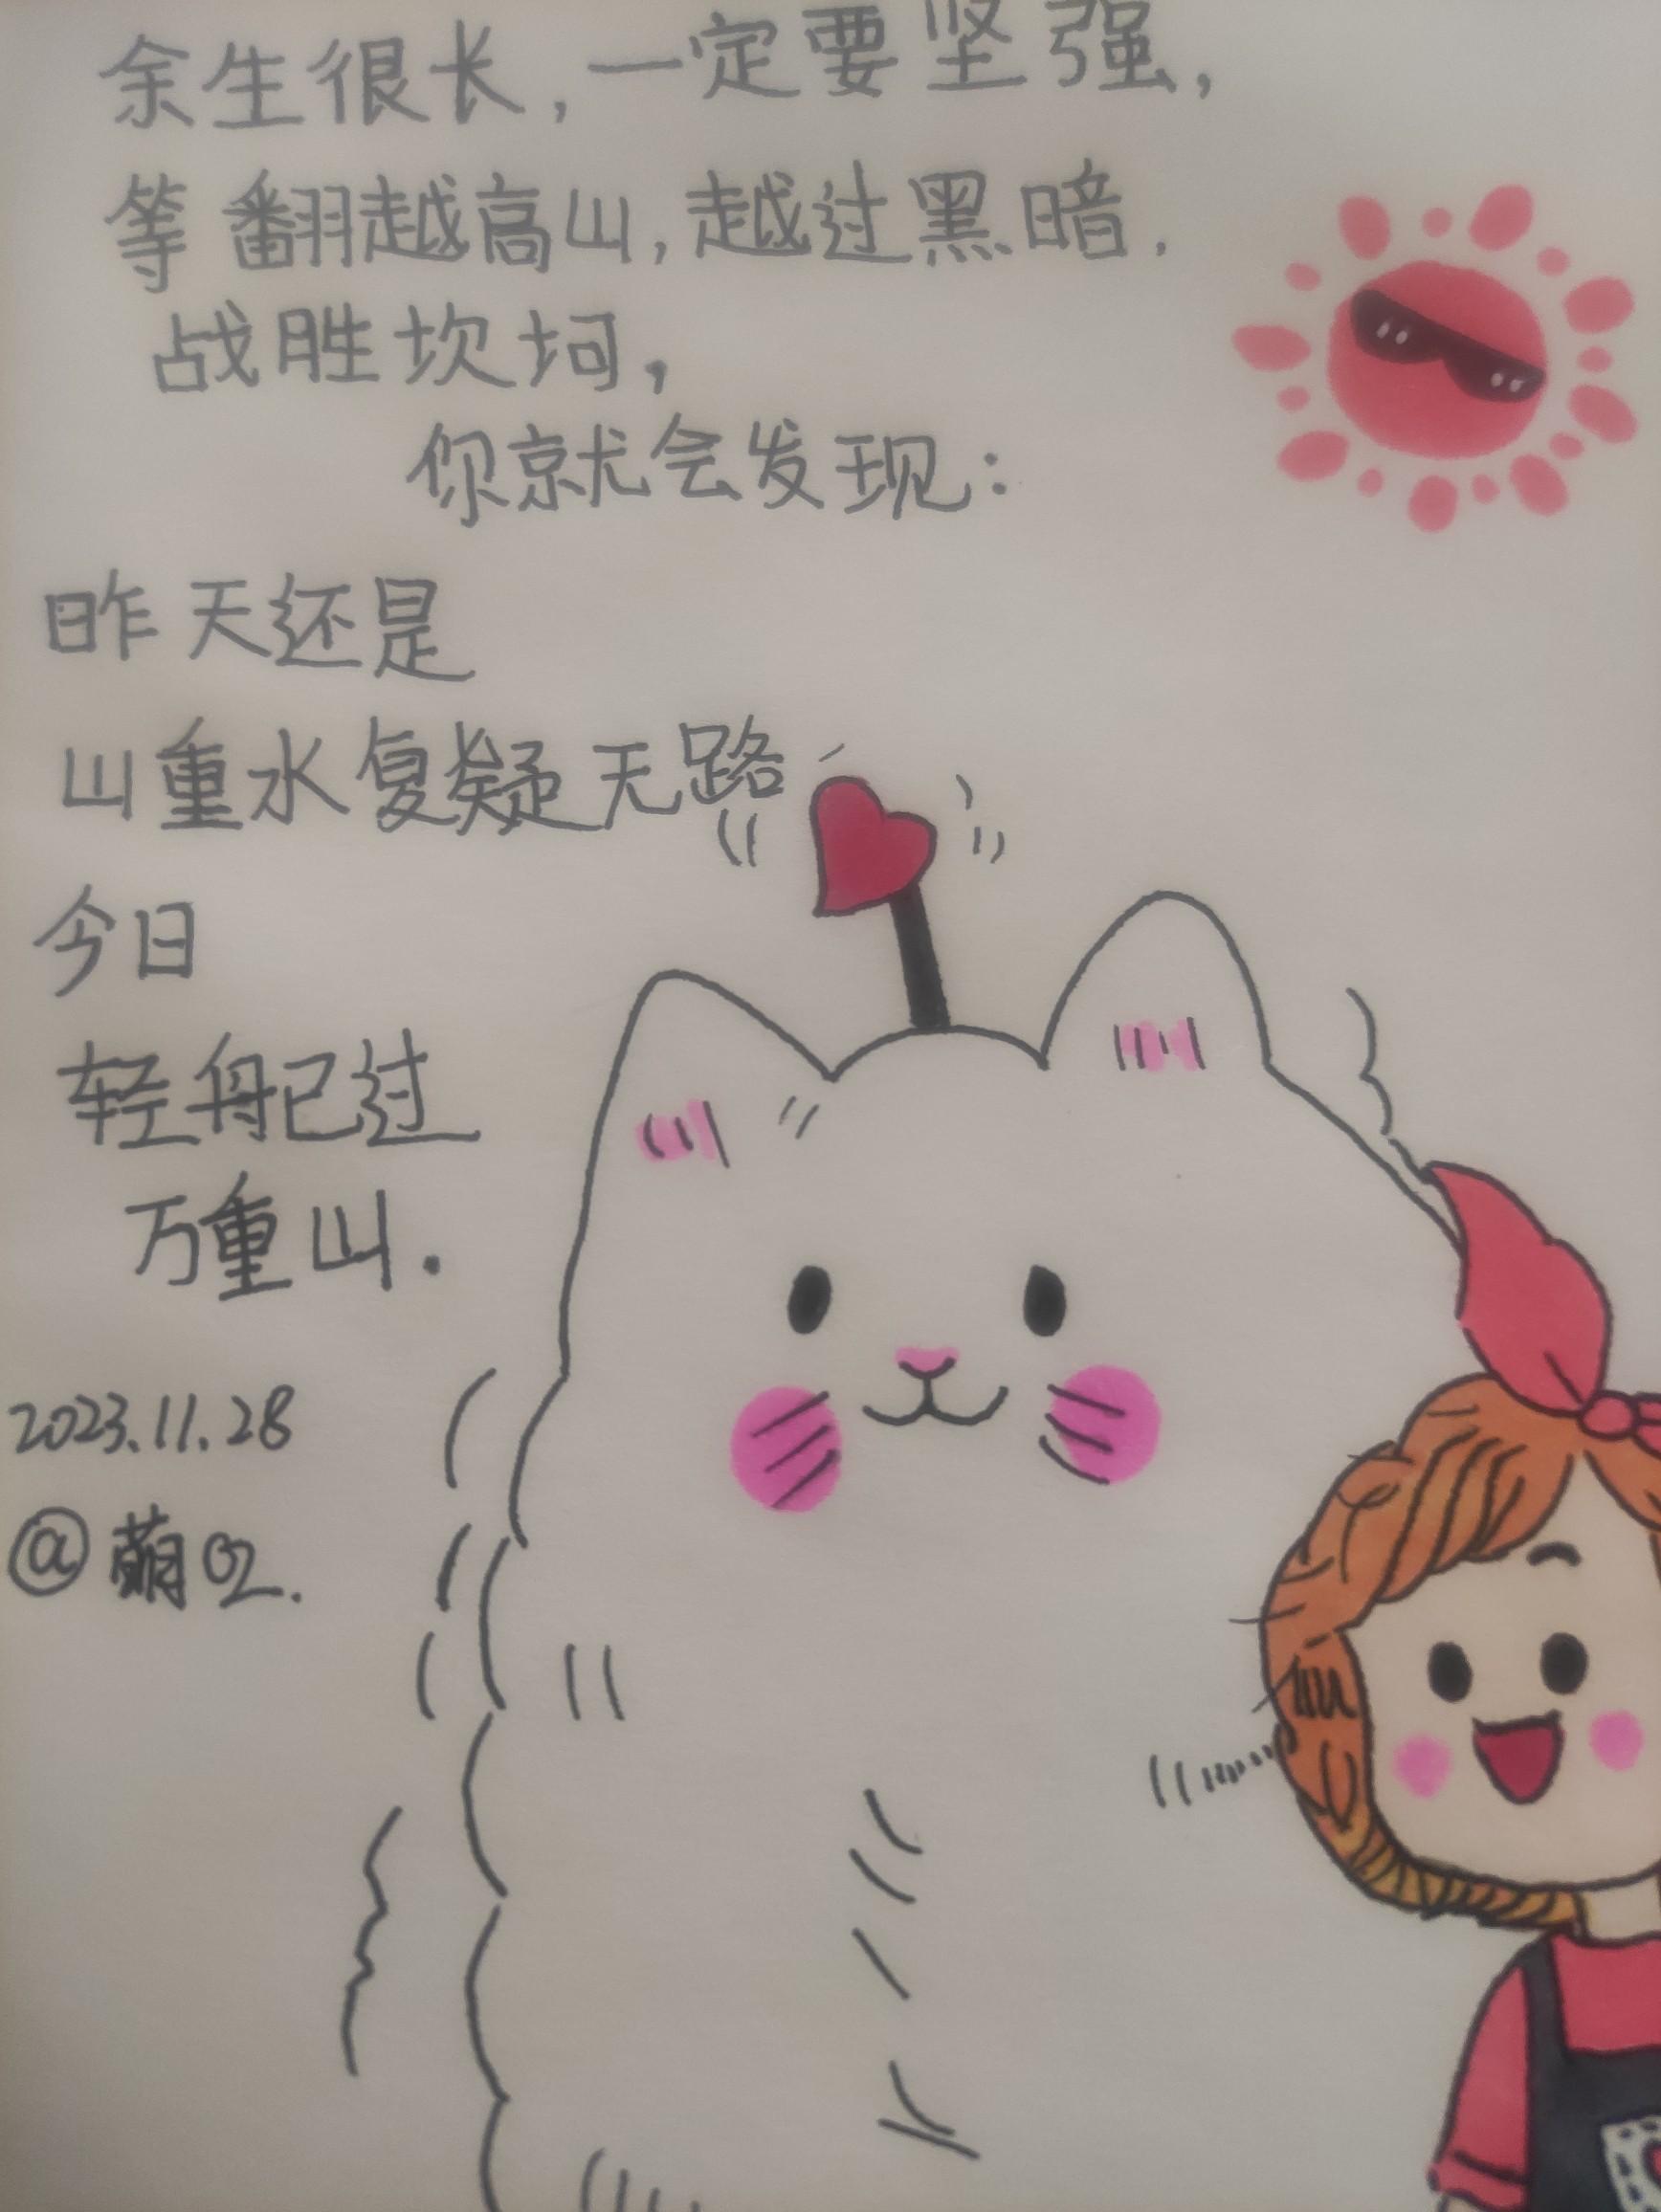 余生很长,一定要坚强,
等翻越高山,越过黑暗,
战胜坎坷,
你就会发现:
昨天还是
山重水复疑无路
今日
轻舟已过
万重山.
2023.11.28
@萌02.